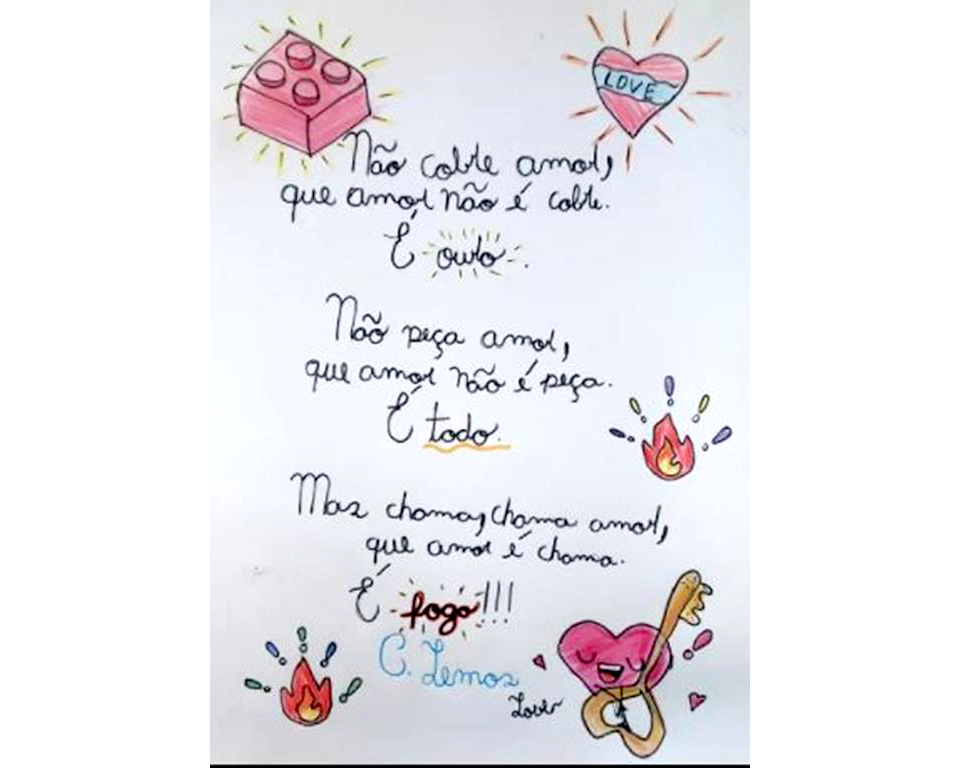 LOVE
Não cobre amor,
que amor não é cobre.
É ouro.
Não peça amor,
que amor não é peça.
É todo.
Mas chama, chama amor,
que amor é chama.
É fogo!!!
C. Lemos
Love